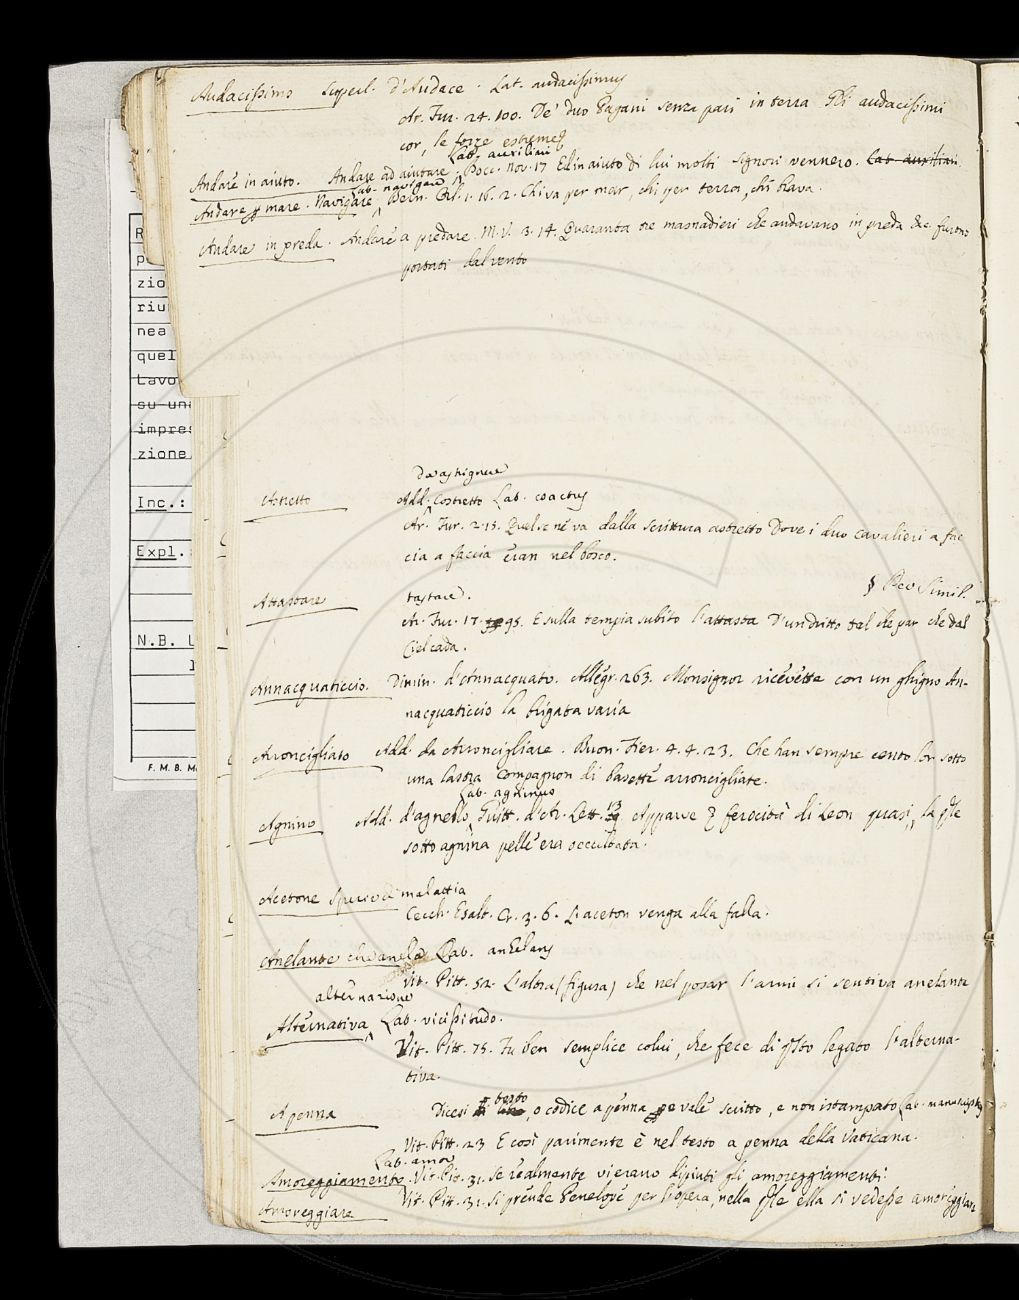 Audacissimo Superl. d'Audace. Lat. audacissimus
Ar. Fur. 24. 100. De' duo Pagani senza pari in terra Gli audacissimi
cor, le forze estreme
Lat. auxiliari
Andare in aiuto. Andare ad aiutare. Bocc. Nov. 17 E in aiuto di lui molti signori vennero. Lat. auxiliari
Lat. navigare
Andare p mare. Navigare, Bern. Orl. 1. 16. 2. Chi va per mar, chi per terra, chi brava.
Andare in preda. Andare a predare. M.V. 3. 14. Quaranta tre masnadieri che andavano in preda &c. furono
portati dal vento
R
p
zio
riu
nea
quel
Lavo
su una
impres
zione
Inc.:
Expl.
N.B. L
F. M. B. M
da astrignere
Astretto Add. Costretto Lat. coactus
Ar. Fur. 2. 15. Quel se ne va dalla scrittura astretto Dove i duo cavalieri a fac
cia a faccia eran nel bosco.
§ Per Simil.
Attastare tastare.
Ar. Fur. 17. 95. E sulla tempia subito l'attasta D'un dritto tal che par che dal
Ciel cada.
Annacquaticcio. Dimin. d'Annacquato. Allegr. 263. Monsignor ricevette con un ghigno An-
nacquaticcio la brigata varia
Arroncigliato Add. da Arroncigliare. Buon. Fier. 4. 4. 23. Che han sempre cento lor sotto
una lastra Compagnon di basette arroncigliate.
Lat. agninus
Agnino Add. d'agnello, Guitt. d'Ar. Lett. 13 Apparve ferocità di Leon quasi, la qle
sotto agnina pelle era occultata.
Acetone Specie di malattia
Cecch. Esalt. Cr. 3. 6. L'aceton venga alla falla.
Anelante che anela Lat. anhelans
Vit. Pitt. 52. L'altra (figura) che nel posar l'armi si sentiva anelante
alternazione
Alternativa, Lat. vicissitudo.
Vit. Pitt. 75. Fu ben semplice colui, che fece di qsto legato l'alterna-
tiva.
testo
A penna Dicesi, o codice a penna vale scritto, e non istampato Lat. manuscriptus
Vit. Pitt. 23 E così parimente è nel testo a penna della Vaticana.
Lat. amor
Amoreggiamento. Vit. Pit. 31. Se realmente v'erano dipinti gli amoreggiamenti
Amoreggiare Vit. Pitt. 31. Si prende Penelope per l'opera, nella qle ella si vedesse amoreggiare